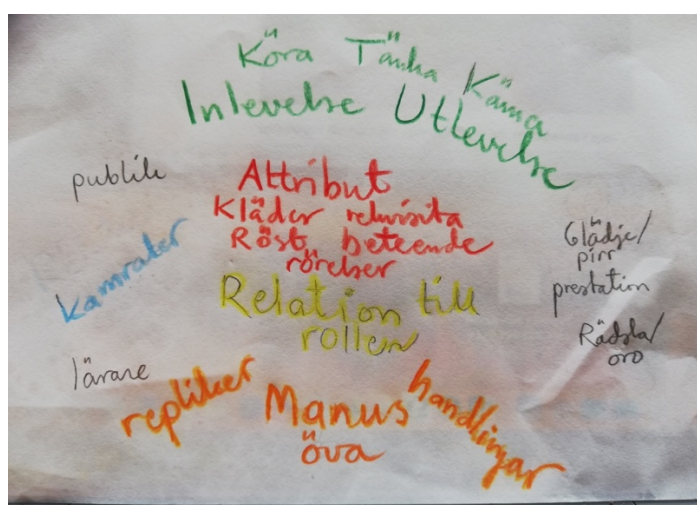 Köra Tänka Känna
Inlevelse Utlevelse
publik
Attribut
Kläder rekvisita
Röst, beteende
rörelser
kamrater
Glädje/
pirr
prestation
Relation till
rollen
Rädsla/
oro
lärare
repliker
Manus
handlingar
öva